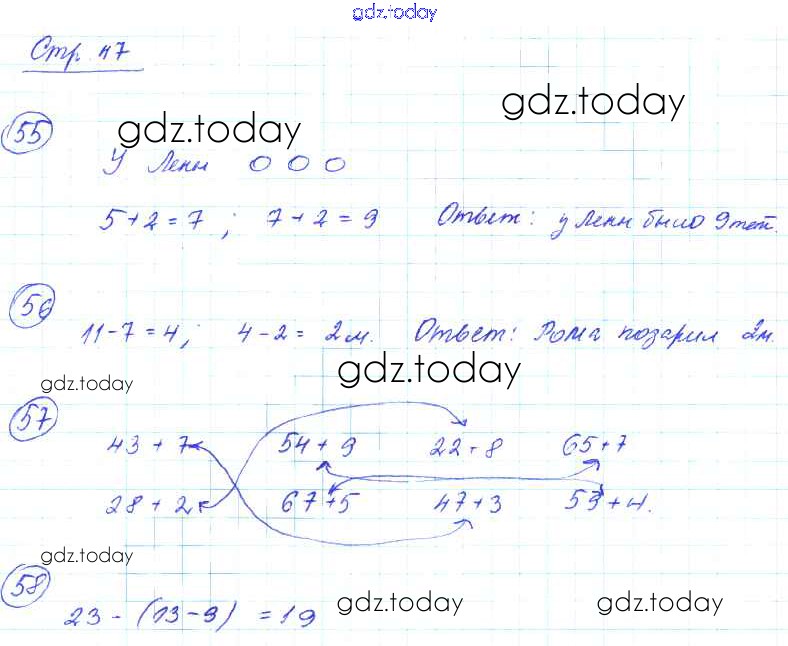 gdz.today
Стр. 47
gdz.today
55 gdz.today
У Лены О О О
5+2=7; 7+2=9 Ответ: у Лены было 9 тет.
56
11-7=4; 4-2=2м. Ответ: Рома подарил 2м.
gdz.today gdz.today
57
43+7 54+9 22+8 65+7
28+2 67+5 47+3 59+4.
gdz.today
58
23-(13-9)=19 gdz.today gdz.today